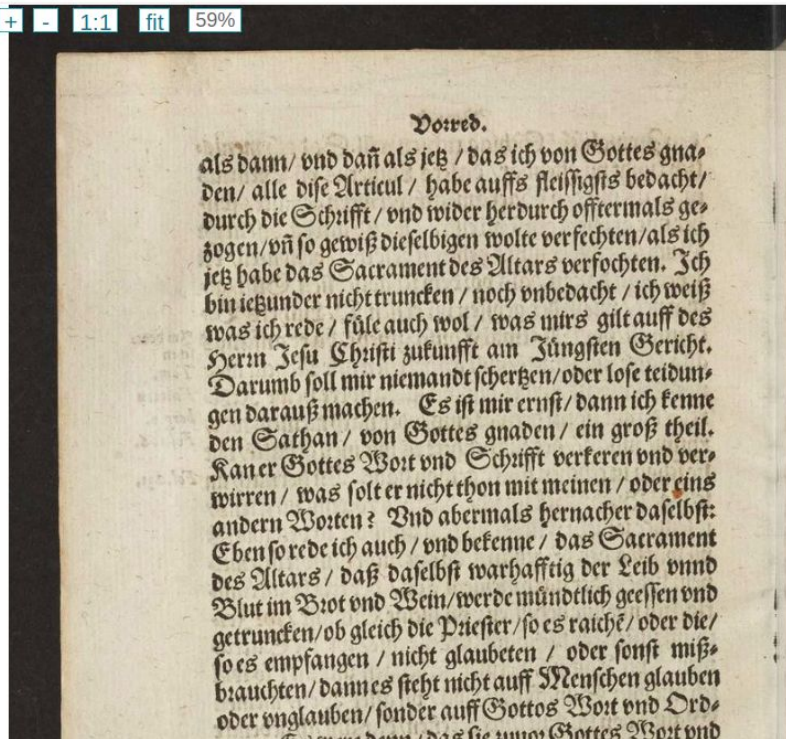 + - 1:1 fit 59%
Vorred.
als dann/ vnd dañ als jetz / das ich von Gottes gna⸗
den/ alle dise Articul / habe auffs fleissigsts bedacht/
durch die Schrifft / vnd wider herdurch offtermals ge⸗
zogen/vñ so gewiß dieselbigen wolte verfechten/als ich
jetz habe das Sacrament des Altars verfochten. Ich
bin ietzunder nicht truncken / noch vnbedacht / ich weiß
was ich rede / füle auch wol / was mirs gilt auff des
Herrn Jesu Christi zukunfft am Jüngsten Gericht.
Darumb soll mir niemandt schertzen/oder lose teidun⸗
gen darauß machen. Es ist mir ernst/ dann ich kenne
den Sathan / von Gottes gnaden / ein groß theil.
Kan er Gottes Wort vnd Schrifft verkeren vnd ver⸗
wirren / was solt er nicht thon mit meinen / oder eins
andern Worten? Vnd abermals hernacher daselbst:
Eben so rede ich auch / vnd bekenne / das Sacrament
des Altars / daß daselbst warhafftig der Leib vnnd
Blut im Brot vnd Wein/werde mündtlich geessen vnd
getruncken/ob gleich die Priester/so es raichẽ/ oder die/
so es empfangen / nicht glaubeten / oder sonst miß⸗
brauchten/ dann es steht nicht auff Menschen glauben
oder vnglauben/ sonder auff Gottos Wort vnd Ord⸗
denn / das sie zuuor Gottes Wort vnd